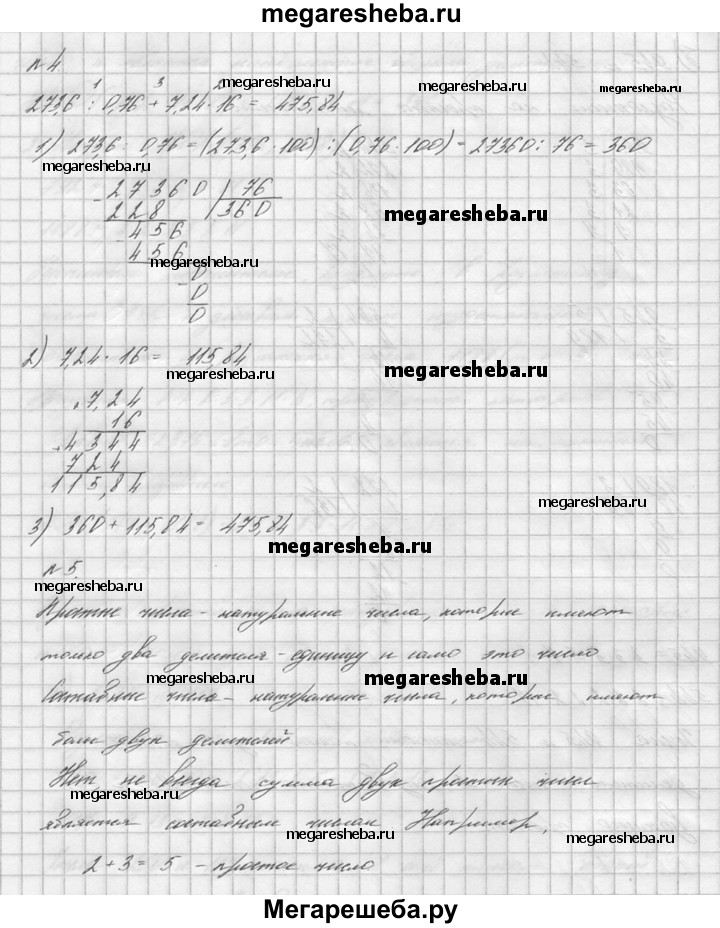 megaresheba.ru
№4
1 3 2
megaresheba.ru
273,6 : 0,76 + 7,24 · 16 = 475,84
1) 273,6 : 0,76 = (273,6 · 100) : (0,76 · 100) = 27360 : 76 = 360
megaresheba.ru
- 27360 | 76
228 | 360
megaresheba.ru
- 456
456
megaresheba.ru
0
- 0
0
2) 7,24 · 16 = 115,84
megaresheba.ru
megaresheba.ru
× 7,24
16
+ 4344
724
115,84
megaresheba.ru
3) 360 + 115,84 = 475,84
megaresheba.ru
№5.
megaresheba.ru
Простые числа - натуральные числа, которые имеют
только два делителя - единицу и само это число
megaresheba.ru
megaresheba.ru
Составные числа - натуральные числа, которые имеют
боли двух делителей
Нет не всегда сумма двух простых чисел
megaresheba.ru
является составным числом Например,
megaresheba.ru
megaresheba.ru
2 + 3 = 5 - простое число
Мегарешеба.ру